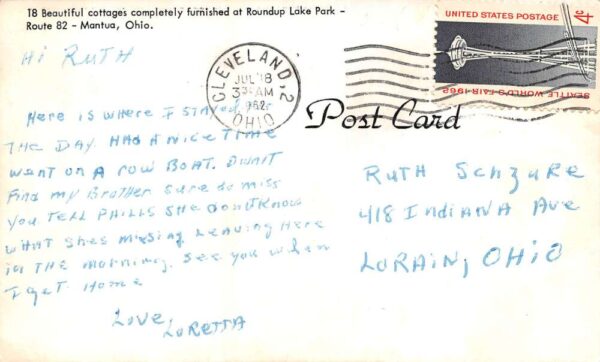 18 Beautiful cottages completely furnished at Roundup Lake Park -
Route 82 - Mantua, Ohio.
UNITED STATES POSTAGE
4¢
SEATTLE WORLD'S FAIR-1962
CLEVELAND, 2
JUL 18
3 AM
1962
OHIO
Post Card
Hi RUTH
Here is where I STAYED for
THE DAY. HAD A NICE TIME
went on a row BOAT. Didnt
Find my BroTher sure do miss
You TELL PHILLS SHe DonTKnow
WHAT SHes missing Leaving Here
in THE morning. See you when
I get Home
Love,
LoReTTA
RuTH Schzure
418 Indiana Ave
LoRAin, OHiO